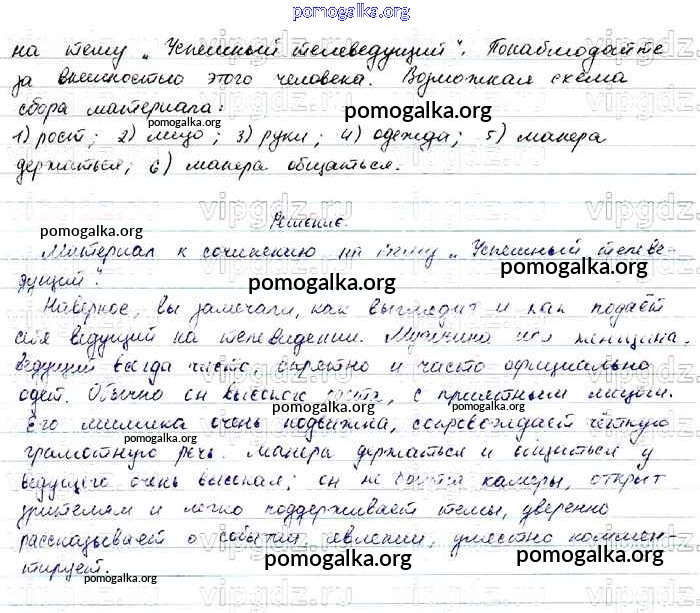 pomogalka.org
на тему „Успешный телеведущий". Понаблюдайте
за внешностью этого человека. Возможная схема
сбора материала:
pomogalka.org
1) рост; 2) лицо; 3) руки; 4) одежда; 5) манера
pomogalka.org
держаться; 6) манера общаться.
pomogalka.org
Решение.
Материал к сочинению на тему „Успешный телеве-
дущий".
pomogalka.org
Наверное, вы замечали, как выглядит и как подаёт
себя ведущий на телевидении. Мужчина или женщина.
pomogalka.org
ведущий всегда чисто, опрятно и часто официально
одет. Обычно он высокого роста, с приятным лицом.
pomogalka.org
Его мимика очень подвижна, сопровождает чёткую
pomogalka.org
грамотную речь. Манера держаться и общаться у
ведущего очень высокая; он не боится камеры, открыт
pomogalka.org
зрителям и легко поддерживает темы, уверенно
рассказывает о событии, явлении, уместно коммен-
pomogalka.org
тирует.
pomogalka.org